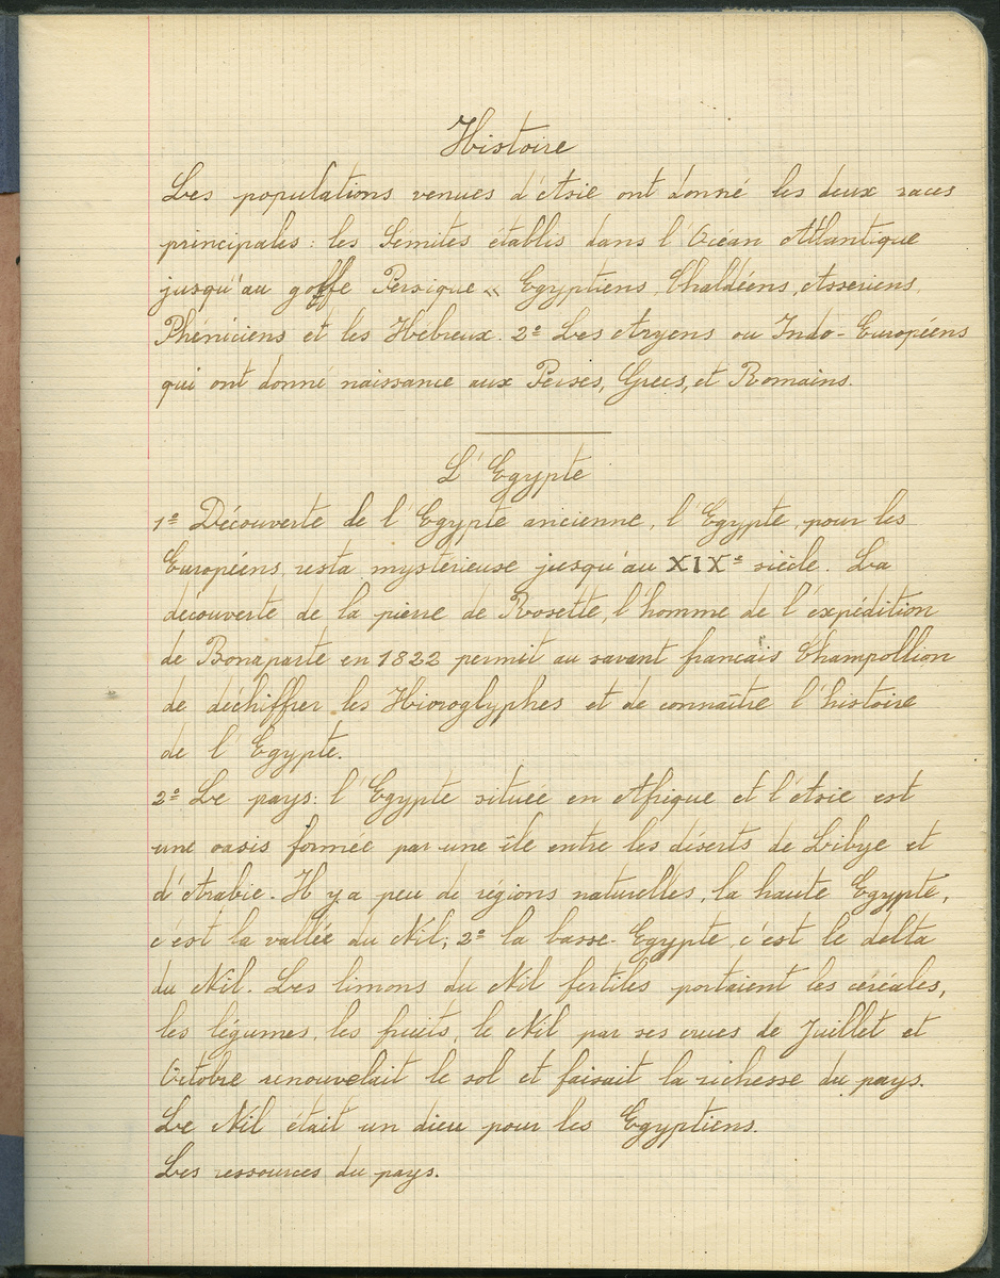 Histoire
Les populations venues d'Asie ont donné les deux races
principales : les Sémites établis dans l'Océan Atlantique
jusqu'au golfe Persique « Egyptiens, Chaldéens, Asseriens,
Phéniciens et les Hébreux. 2º Les Aryens ou Indo-Européens
qui ont donné naissance aux Perses, Grecs, et Romains.
L'Egypte
1º Découverte de l'Egypte ancienne, l'Egypte, pour les
Européens, resta mystérieuse jusqu'au XIXe siècle. La
découverte de la pierre de Rosette, l'homme de l'expédition
de Bonaparte en 1822 permit au savant français Champollion
de déchiffrer les Hioroglyphes et de connaître l'histoire
de l'Egypte.
2º Le pays : l'Egypte située en Afrique et l'Asie est
une oasis formée par une île entre les déserts de Libye et
d'Arabie. Il y a peu de régions naturelles, la haute Egypte,
c'est la vallée du Nil; 2º la basse-Egypte, c'est le delta
du Nil. Les limons du Nil fertiles portaient les céréales,
les légumes, les fruits, le Nil par ses crues de Juillet et
Octobre renouvelait le sol et faisait la richesse du pays.
Le Nil était un dieu pour les Egyptiens.
Les ressources du pays.